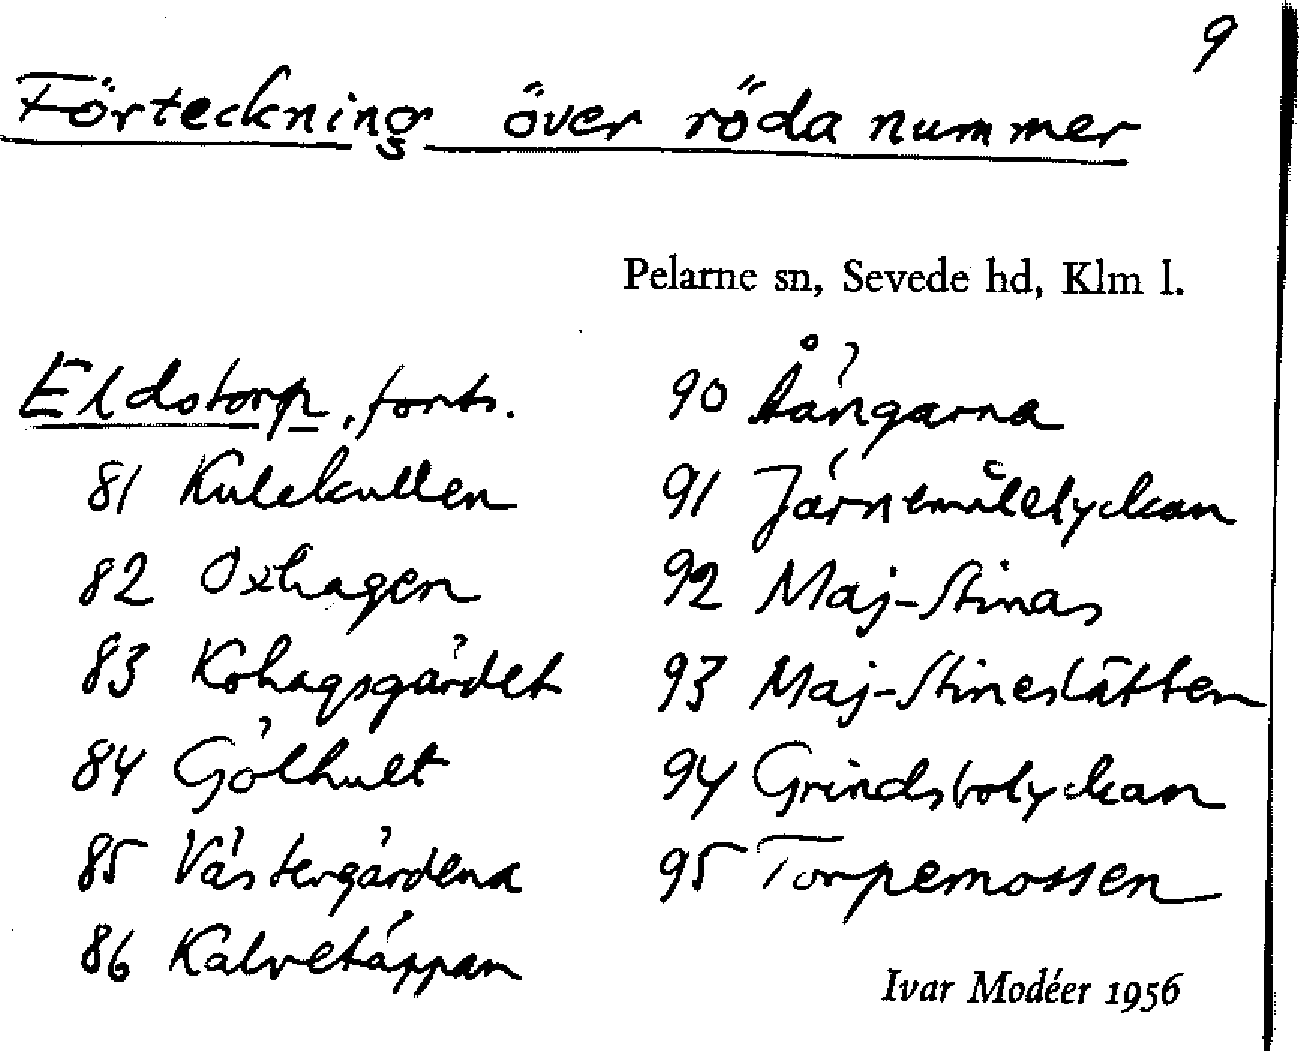 9
Förteckning över röda nummer
Pelarne sn, Sevede hd, Klm l.
Eldstorp, forts.
81 Kulekullen
82 Oxhagen
83 Kohagsgärdet
84 Gölhult
85 Västergärdena
86 Kalvetäppan
90 Åängarna
91 Järnemålelyckan
92 Maj-Stinas
93 Maj-Stineslätten
94 Grindsbolyckan
95 Torpemossen
Ivar Modéer 1956